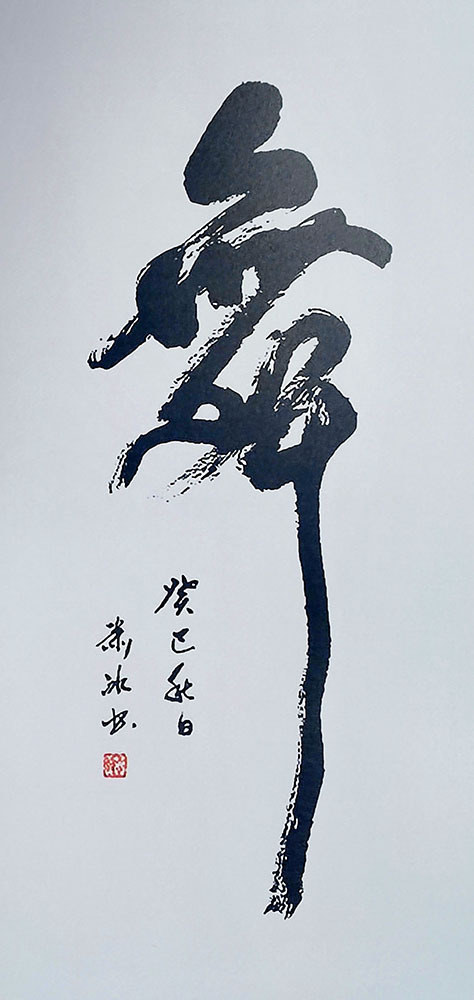 舞
癸巳秋日
冰书